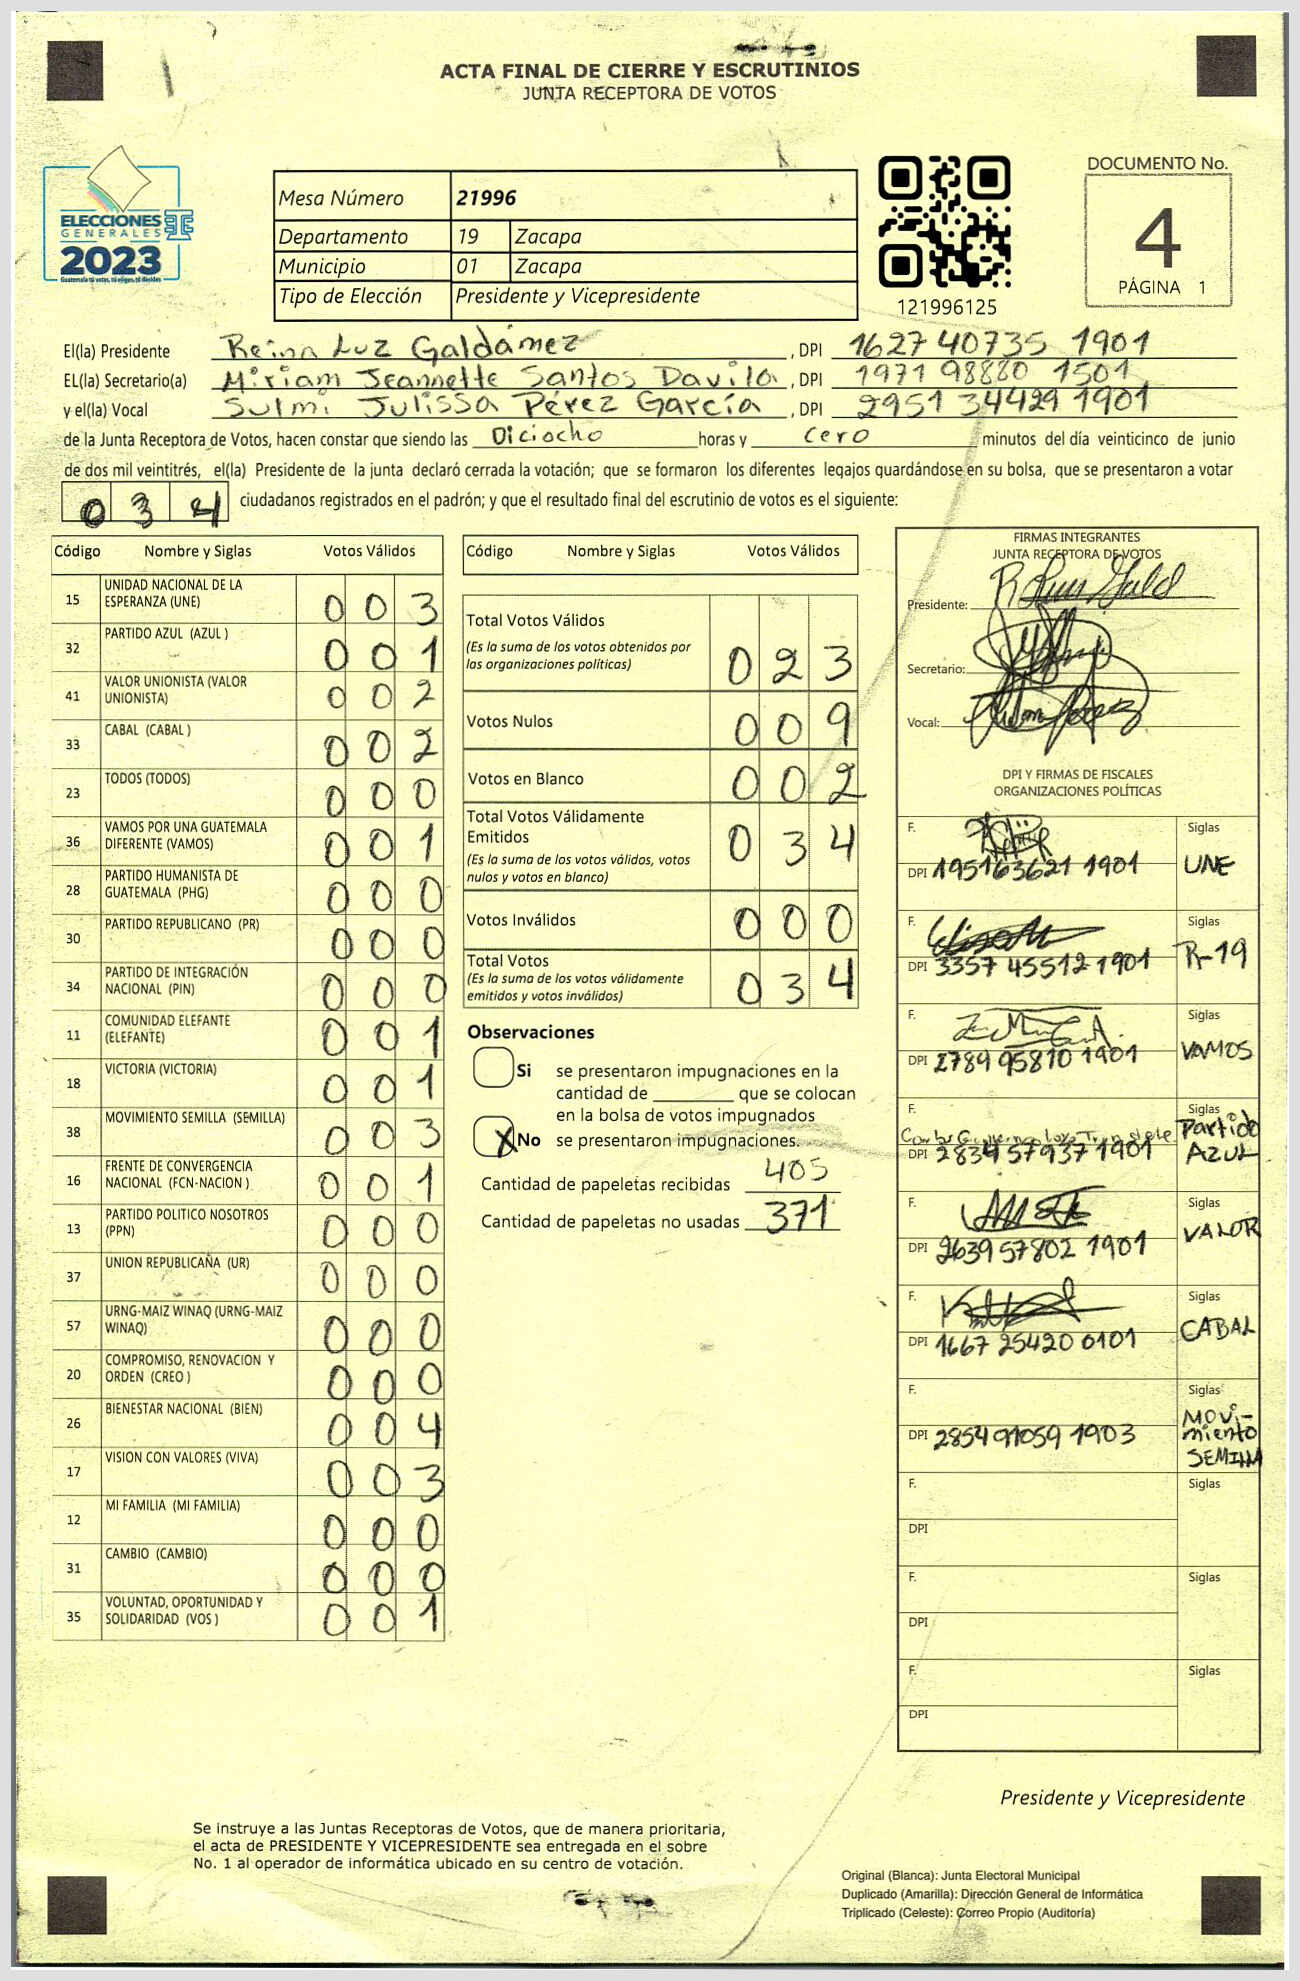 ACTA FINAL DE CIERRE Y ESCRUTINIOS
JUNTA RECEPTORA DE VOTOS
ELECCIONES
GENERALES
2023
Guatemala tú votas, tú eliges, tú decides
Mesa Número 21996
Departamento 19 Zacapa
Municipio 01 Zacapa
Tipo de Elección Presidente y Vicepresidente
121996125
DOCUMENTO No.
4
PÁGINA 1
El(la) Presidente Reina Luz Galdámez , DPI 1627 40735 1901
EL(la) Secretario(a) Miriam Jeannette Santos Davila , DPI 1971 98880 1501
y el(la) Vocal Sulmi Julissa Pérez García , DPI 2951 34429 1901
de la Junta Receptora de Votos, hacen constar que siendo las Diciocho horas y cero minutos del día veinticinco de junio
de dos mil veintitrés, el(la) Presidente de la junta declaró cerrada la votación; que se formaron los diferentes legajos guardándose en su bolsa, que se presentaron a votar
034 ciudadanos registrados en el padrón; y que el resultado final del escrutinio de votos es el siguiente:
Código Nombre y Siglas Votos Válidos
15 UNIDAD NACIONAL DE LA ESPERANZA (UNE) 003
32 PARTIDO AZUL (AZUL ) 001
41 VALOR UNIONISTA (VALOR UNIONISTA) 002
33 CABAL (CABAL ) 002
23 TODOS (TODOS) 000
36 VAMOS POR UNA GUATEMALA DIFERENTE (VAMOS) 001
28 PARTIDO HUMANISTA DE GUATEMALA (PHG) 000
30 PARTIDO REPUBLICANO (PR) 000
34 PARTIDO DE INTEGRACIÓN NACIONAL (PIN) 000
11 COMUNIDAD ELEFANTE (ELEFANTE) 001
18 VICTORIA (VICTORIA) 001
38 MOVIMIENTO SEMILLA (SEMILLA) 003
16 FRENTE DE CONVERGENCIA NACIONAL (FCN-NACION ) 001
13 PARTIDO POLITICO NOSOTROS (PPN) 000
37 UNION REPUBLICANA (UR) 000
57 URNG-MAIZ WINAQ (URNG-MAIZ WINAQ) 000
20 COMPROMISO, RENOVACION Y ORDEN (CREO ) 000
26 BIENESTAR NACIONAL (BIEN) 004
17 VISION CON VALORES (VIVA) 003
12 MI FAMILIA (MI FAMILIA) 000
31 CAMBIO (CAMBIO) 000
35 VOLUNTAD, OPORTUNIDAD Y SOLIDARIDAD (VOS ) 001
Código Nombre y Siglas Votos Válidos
Total Votos Válidos
(Es la suma de los votos obtenidos por las organizaciones políticas) 023
Votos Nulos 009
Votos en Blanco 002
Total Votos Válidamente Emitidos
(Es la suma de los votos válidos, votos nulos y votos en blanco) 034
Votos Inválidos 000
Total Votos
(Es la suma de los votos válidamente emitidos y votos inválidos) 034
Observaciones
Si se presentaron impugnaciones en la
cantidad de ________ que se colocan
en la bolsa de votos impugnados
X No se presentaron impugnaciones.
Cantidad de papeletas recibidas 405
Cantidad de papeletas no usadas 371
FIRMAS INTEGRANTES
JUNTA RECEPTORA DE VOTOS
Presidente:
Secretario:
Vocal:
DPI Y FIRMAS DE FISCALES
ORGANIZACIONES POLÍTICAS
F. Siglas
DPI 195163621 1901 UNE
F. Siglas
DPI 3357 45512 1901 R-19
F. Siglas
DPI 2789 95810 1901 VAMOS
F. Siglas
DPI 2834 57937 1901 Partido AZUL
F. Siglas
DPI 2639 57802 1901 VALOR
F. Siglas
DPI 1667 25420 0101 CABAL
F. Siglas
DPI 2854 91059 1903 MOVi-miento SEMILLA
F. Siglas
DPI
F. Siglas
DPI
F. Siglas
DPI
Presidente y Vicepresidente
Se instruye a las Juntas Receptoras de Votos, que de manera prioritaria,
el acta de PRESIDENTE Y VICEPRESIDENTE sea entregada en el sobre
No. 1 al operador de informática ubicado en su centro de votación.
Original (Blanca): Junta Electoral Municipal
Duplicado (Amarilla): Dirección General de Informática
Triplicado (Celeste): Correo Propio (Auditoría)